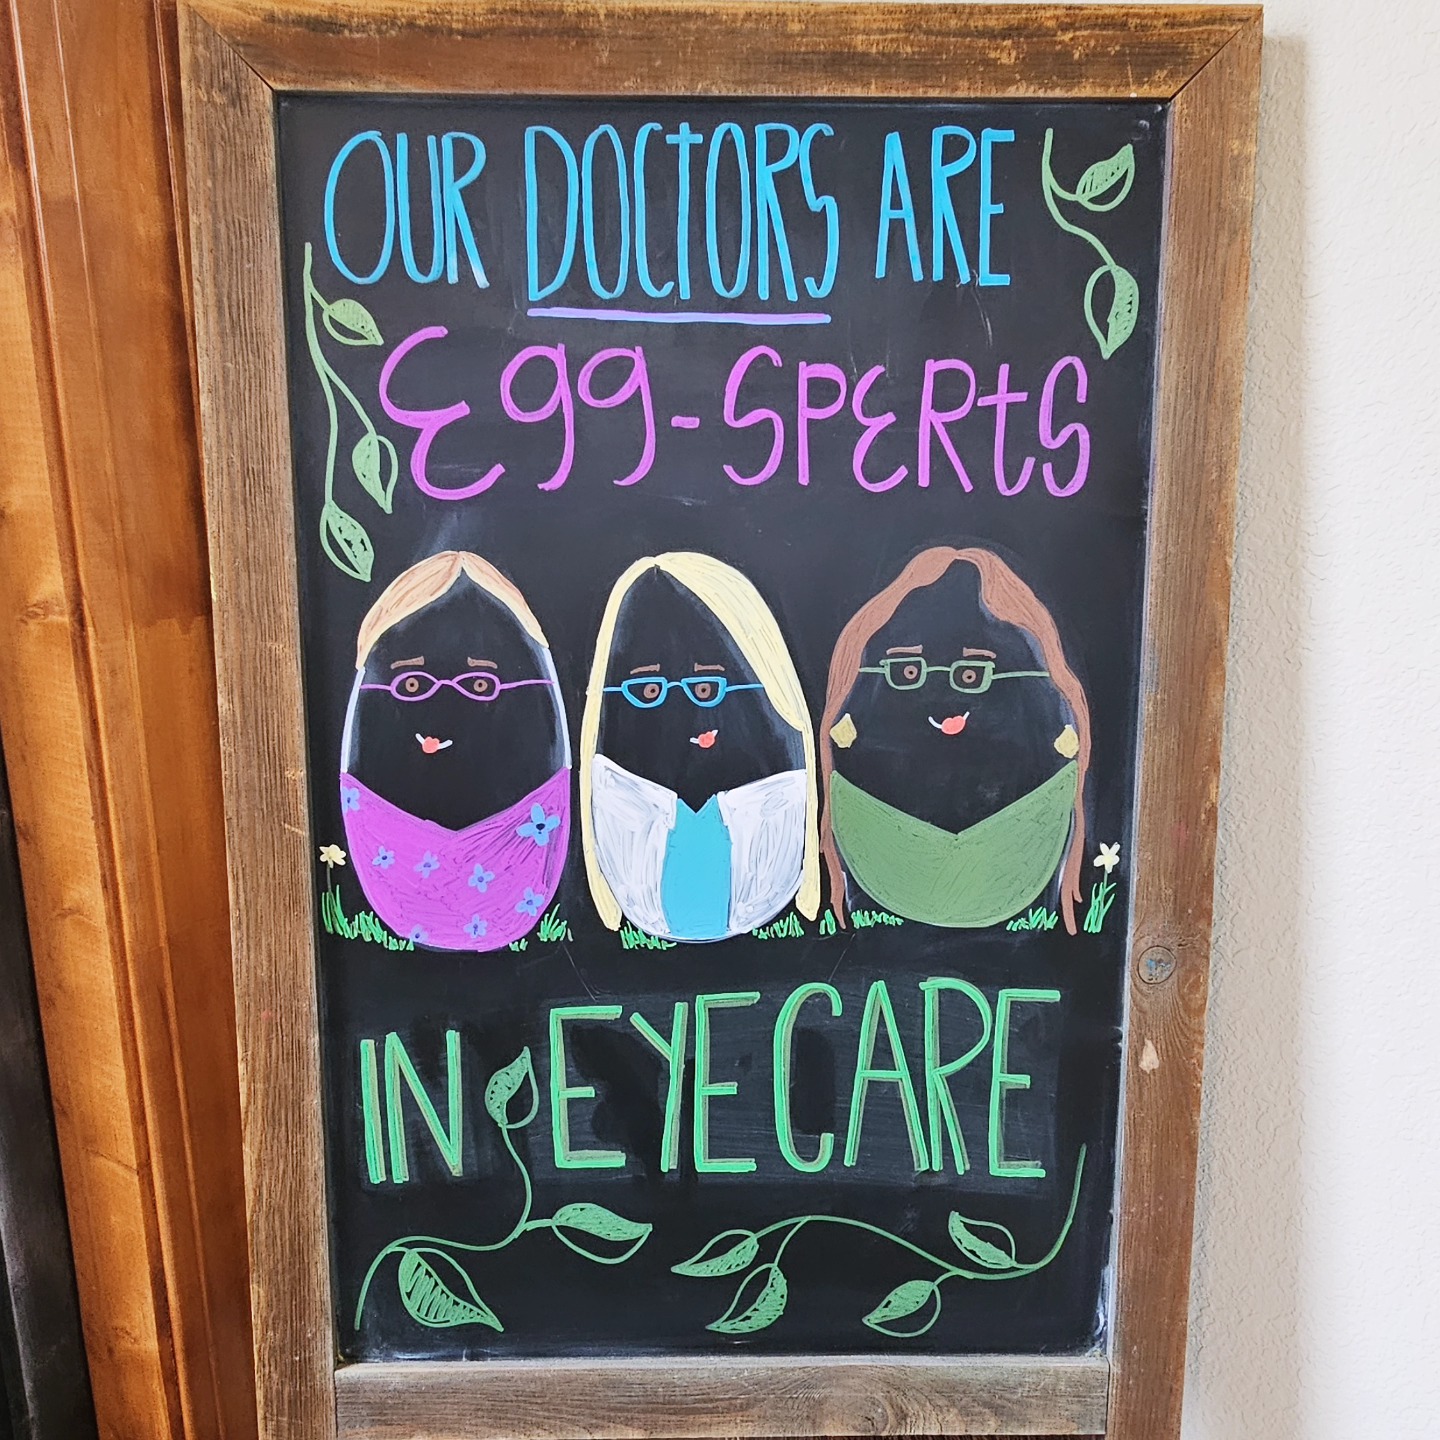 OUR DOCTORS ARE
Egg-SPERtS
IN EYECARE